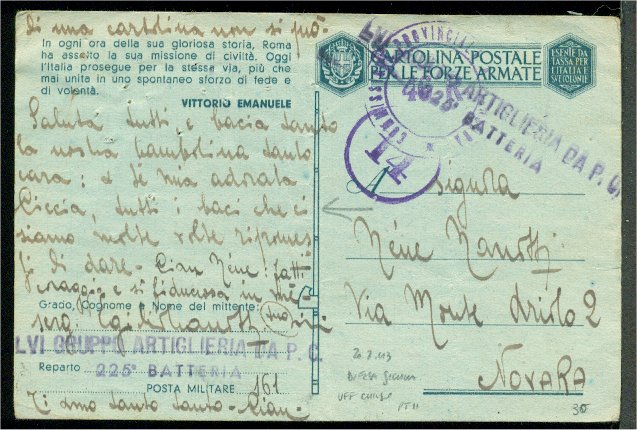 di una cartolina non si può-
In ogni ora della sua gloriosa storia, Roma
ha assolto la sua missione di civiltà. Oggi
l'Italia prosegue per la stessa via, più che
mai unita in uno spontaneo sforzo di fede e
di volontà.
VITTORIO EMANUELE
Saluta tutti e bacia tanto
la nostra bambolina tanto
cara: e tu mia adorata
Ciccia, tutti i baci che ci
siamo molte volte ripromes
si di dare. Ciau Nène! fatti
coraggio e sii fiduciosa in me
Grado, Cognome e Nome del mittente:
serg.
LVI GRUPPO ARTIGLIERIA DA P. C.
Reparto 225ª BATTERIA
POSTA MILITARE 161
Ti amo tanto tanto - Ciau -
CARTOLINA POSTALE
PER LE FORZE ARMATE
ESENTE DA
TASSA PER
L'ITALIA E
SUE COLONIE
LVI
ARTIGLIERIA DA P. C.
225ª BATTERIA
14
Signora
Nène Zanotti
Via Monte Ariolo 2
NOVARA
PT 11
30